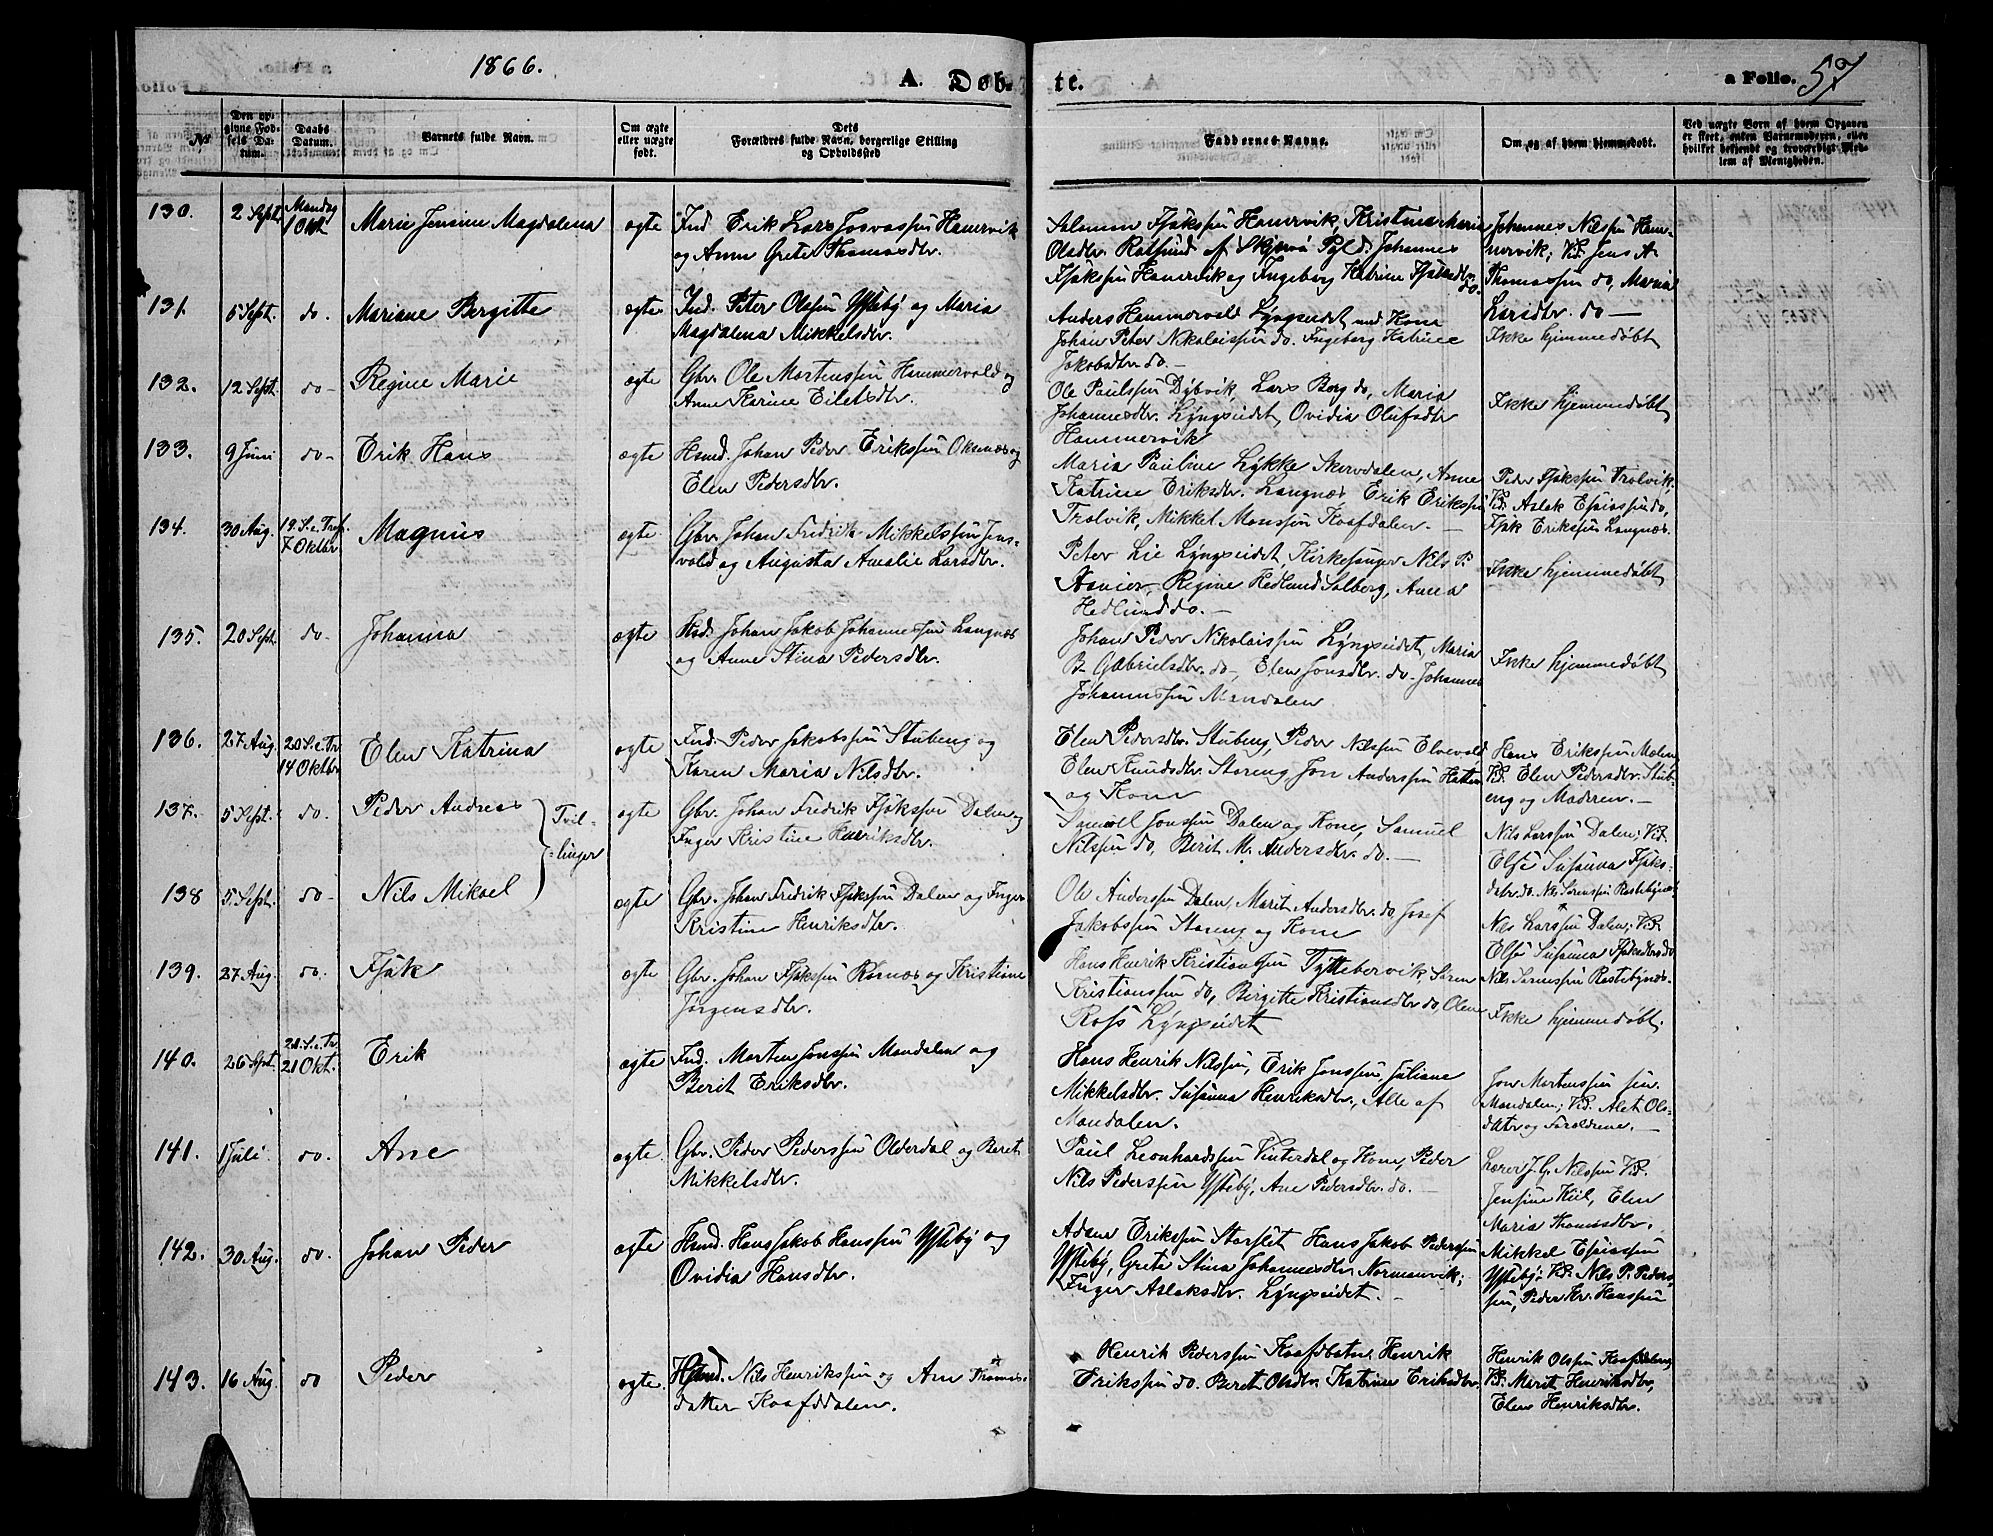 1866.
A. Døb-
te.
a Folio. 57
No
Den op-
givne Fød-
sels Da-
tum.
Daabs
Datum.
Barnets fulde Navn.
Om ægte
eller uægte
født.
Dets
Forældres fulde Navn, borgerlige Stilling
og Opholdssted
Faddernes Navne.
Om og af hvem hjemmedøbt.
Ved uægte Børn af hvem Opgaven
er skeet, enten Barnemoderen, eller
hvilket bekjendt og troværdigt Med-
lem af Menigheden.
130. 2 Sept. Mandag 1 Okt. Marie Jensine Magdalena ægte Ind. Erik Lars Josvassøn Hamervik
og Anne Grete Thomasdtr.
Salomon Isaksøn Hamervik, Kristine Maria
Olsdtr. Rotsund af Skjervø Pgld. Johannes
Isaksøn Hamervik og Ingeborg Katrine Isaksdtr. do.
Johannes Nilsøn Ham-
nervik; Vid. Jens A.
Thomassøn do, Maria
Larsdtr. do —
131. 5 Sept. do. Mariane Bergitte ægte Ind. Peter Olssøn Ysteby og Maria
Magdalena Mikkelsdtr.
Anders Hammervold Lyngseidet med Kone
Johan Peter Nikolaissøn do. Ingeborg Katrine
Jakobsdtr. do. —
Ikke hjemmedøbt
132. 12 Sept. do- Regine Marie ægte Gbr. Ole Mortenssøn Hammervold og
Anne Karine Eilertsdtr.
Ole Paulssøn Dybvik, Lars Borg do, Maria
Johannesdtr. Lyngseidet, Ovidia Olufsdtr
Hammervik
Ikke hjemmedøbt
133. 9 Juni do- Erik Hans ægte Hsmd. Johan Peder Erikssøn Oksnæs og
Elen Pedersdtr.
Maria Pauline Lykke Skervdalen, Anne
Katrine Eriksdtr. Langnæs Erik Erikssøn
Trolvik, Mikkel Monssøn Kaafdalen. —
Peder Isaksøn Trolvik,
Vid. Aslak Esaiassøn do,
Isak Erikssøn Langnæs.
134. 30 Aug. 19 S. e. Tref. 7 Oktbr Magnus ægte Gbr. Johan Fredrik Mikkelssøn Jens-
vold og Augusta Amalie Larsdtr.
Peter Lie Lyngseidet, Kirkesanger Nils P.
Regine Hedlund Solberg, Anna
Hedlund do. —
Ikke hjemmedøbt
135. 20 Sept. do Johanna ægte Johan Jakob Johannessøn Langnæs
og Anne Stina Pedersdtr.
Johan Peder Nikolaissøn Lyngseidet, Maria
B. Gabrielsdtr. do, Elen Jonsdtr. do. Johannes
Johannessøn Mandalen
Ikke hjemmedøbt
136. 27 Aug. 20 S. e. Tr. 14 Oktbr. Elen Katrina ægte Ind. Peder Jakobssøn Stubeng og
Karen Maria Nilsdtr.
Elen Pedersdtr. Stubeng, Peder Nilssøn Elvevold
Elen Knudsdtr. Storeng Jon Anderssøn Hatten
og Kone
Hans Erikssøn
Vid. Elen Pedersdtr. Stub-
eng og Moderen. —
137. 5 Sept. do. Peder Andreas
Tvil-
linger
ægte Gbr. Johan Fredrik Isaksøn Dalen og
Inger Kristine Henriksdtr.
Jonssøn Dalen og Kone, Samuel
Nilssøn do, Berit M. Andersdtr. do. —
Nils Larssøn Dalen; Vid.
Elsé Susanna Isaks-
datr. do. Nils Sørenssøn Rastebynæs
138 5 Sept. do- Nils Mikael ægte Gbr. Johan Fredrik Isaksøn Dalen og Inger
Kristine Henriksdtr.
Ole Anderssøn Dalen, Marit Andersdtr. do, Josef
Jakobssøn Storeng og Kone
Nils Larssøn Dalen; Vid.
Elsé Susanna Isaksdtr. do
Nils Sørenssøn Rastebynæs.
139. 27 Aug. do. Isak ægte Gbr. Johan Isaksøn Rørnæs og Kristiane
Jørgensdtr.
Hans Henrik Kristianssøn Tyttebervik, Søren
Kristianssøn do, Birgitte Kristiansdtr. do, Olene
Ross Lyngseidet
Ikke hjemmedøbt.
140. 26 Sept. 21 S. e. Tr. 21 Okt. Erik ægte Ind. Morten Jonssøn Mandalen og
Berit Eriksdtr.
Hans Henrik Nilssøn, Erik Jonssøn, Juliane
Mikkelsdtr. Susanna Henriksdtr., Alle af
Mandalen.
Jon Mortenssøn sen.
Mandalen; Vid. Alet Ols-
datr og Forældrene. —
141. 1 Juli do. Ane ægte. Gbr. Peder Pederssøn Olderdal og Beret
Mikkelsdtr.
Paul Leonhardssøn Vinterdal og Kone, Peder
Nils Pederssøn Ysteby, Ane Pedersdtr. do. —
Lærer J. G. Nilssøn Vid.
Jensine Kiil, Elen
Maria Thomasdtr.
142. 30 Aug. do Johan Peder ægte Hsmd. Hans Jakob Hanssøn Ysteby og
Ovidia Hansdtr.
Adam Erikssøn Storslet Hans Jakob Pederssøn
Ysteby, Grete Stina Johannesdtr. Normanvik;
Inger Aslaksdtr. Lyngseidet. —
Mikkel Esaiassøn
Ysteby; Vid. Nils P. Peders-
søn, Peder Kr. Hanssøn
143. 16 Aug. do Peder ægte. Hsmd. Nils Henrikssøn og Ane Thomas-
datter Kaafdalen.
Henrik Pederssøn Kaafdbotn. Henrik
Erikssøn do. Beret Olsdtr. Katrine Eriksdtr.
Henrik Olssøn Kaafdalen,
Vid. Marit Henriksdtr.,
Elen Henriksdtr.